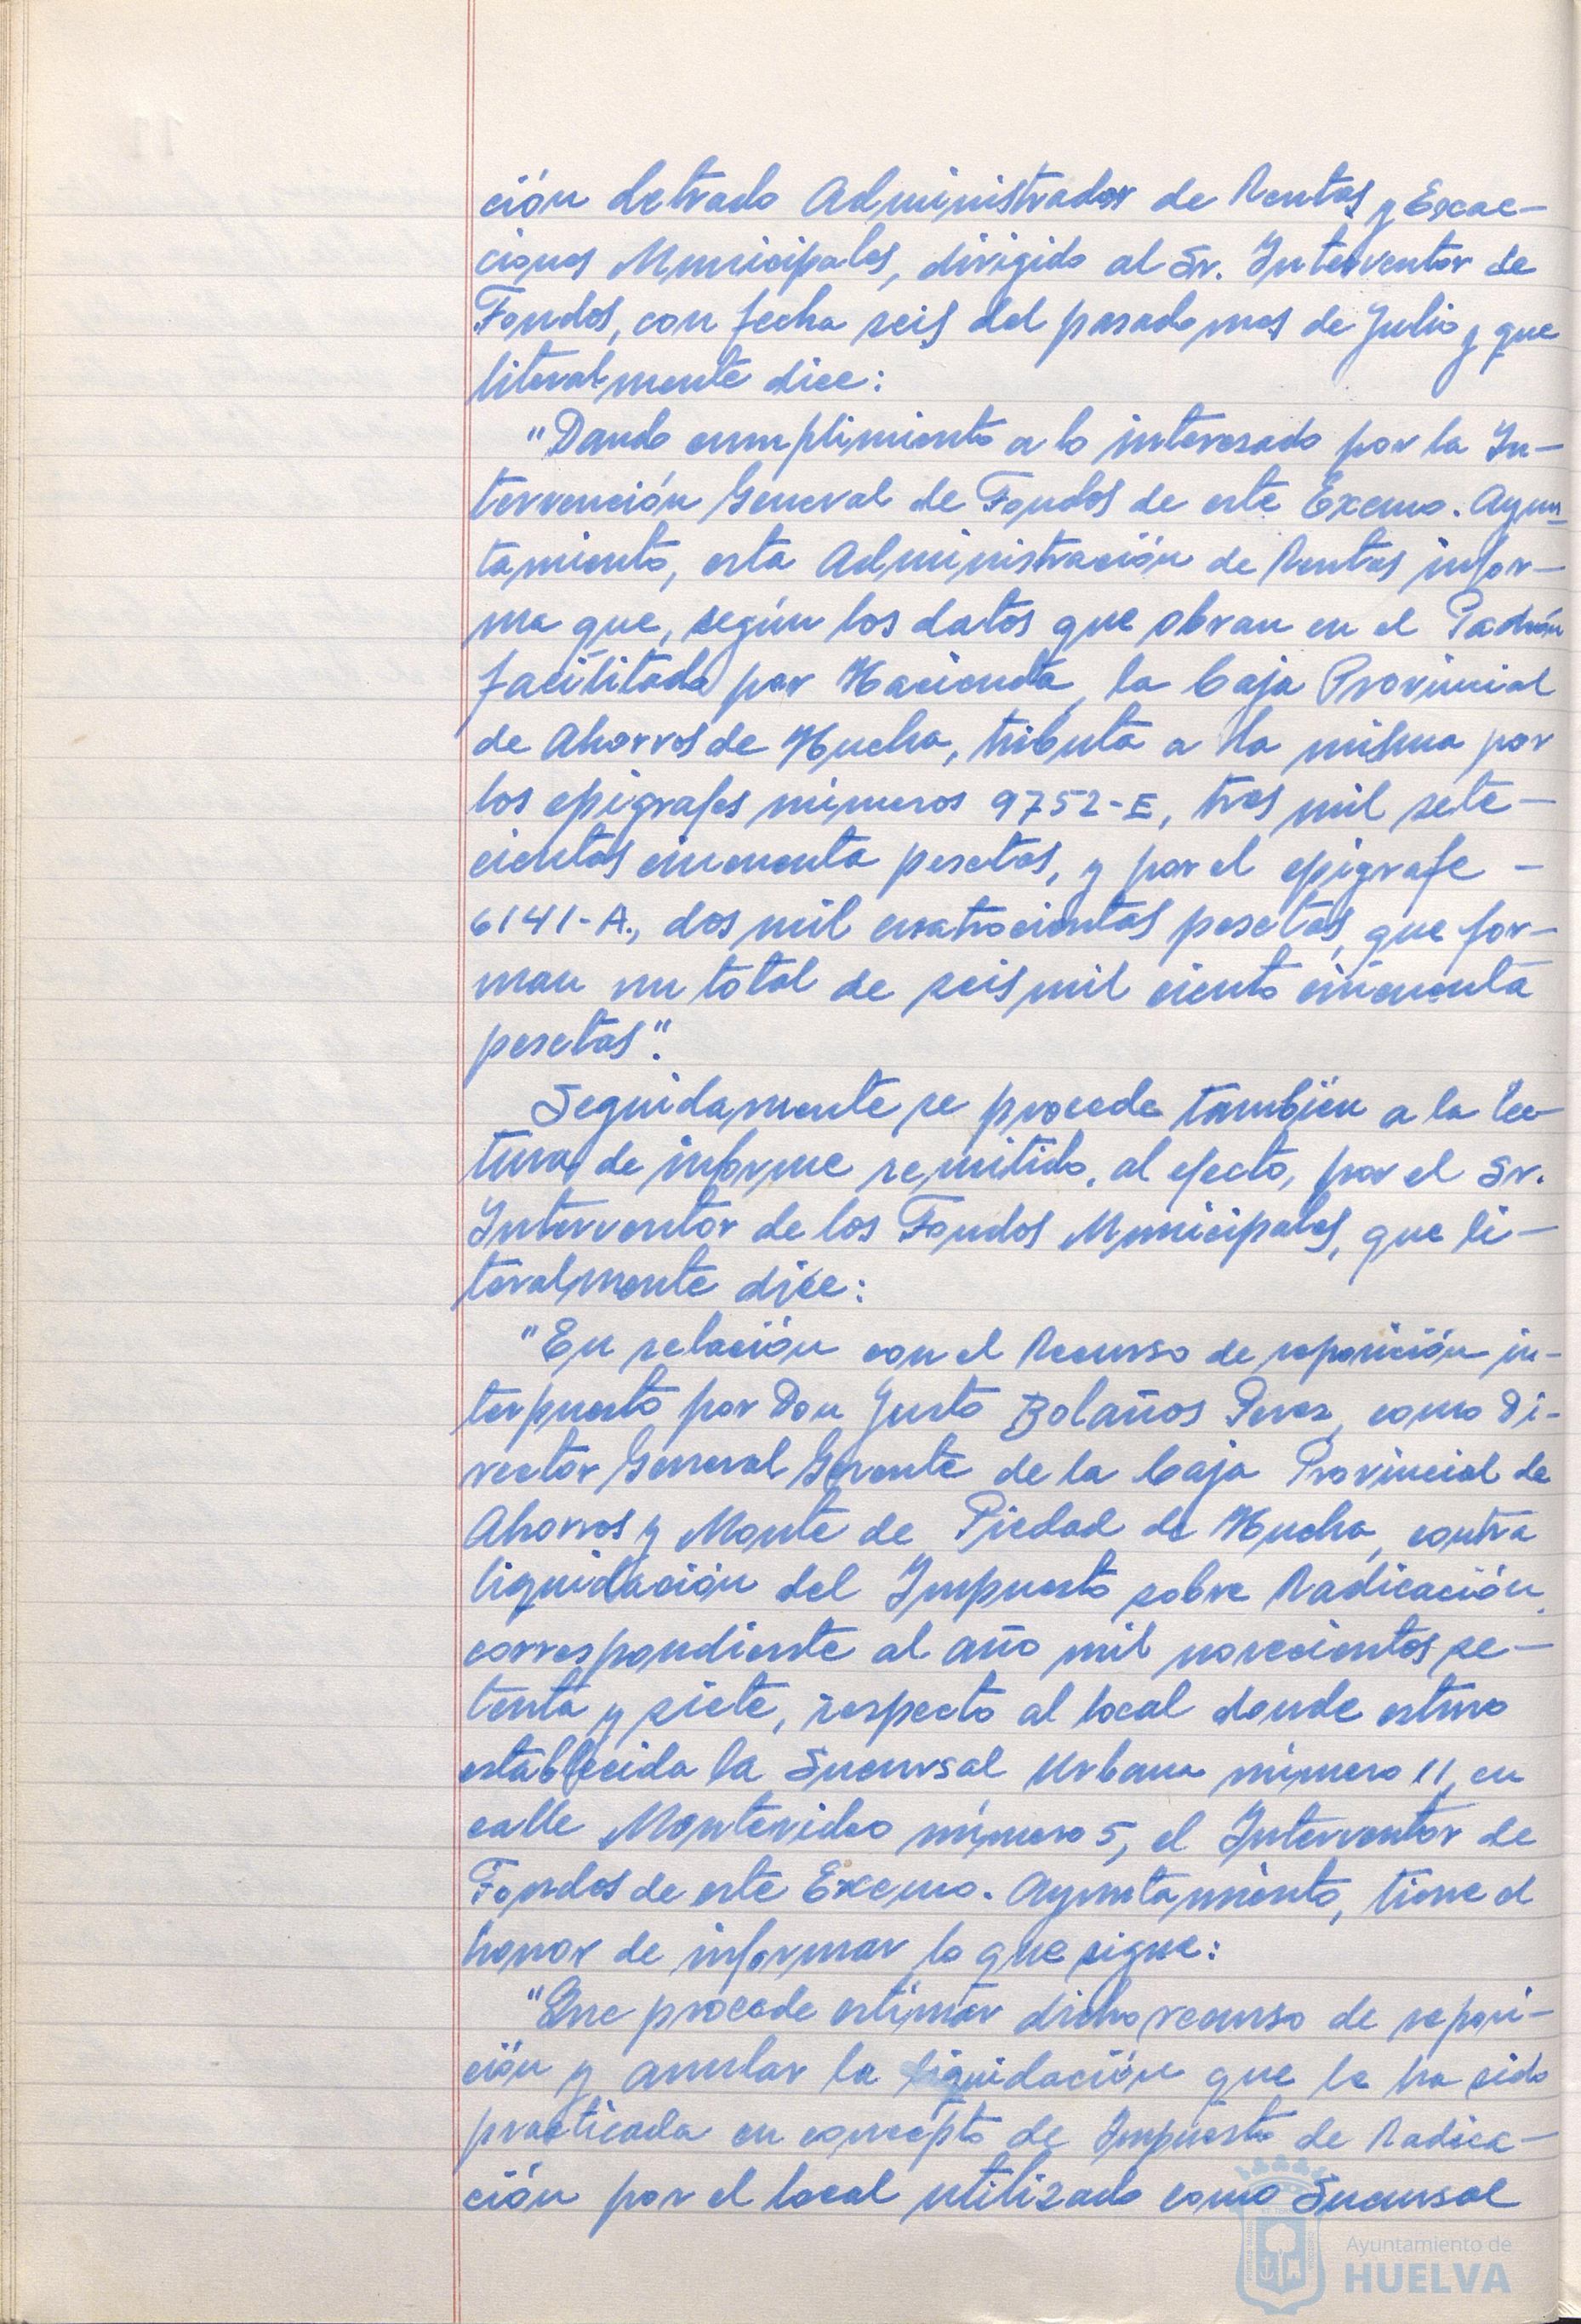 ción Letrado Administrador de Rentas y Exac-
ciones Municipales, dirigido al Sr. Interventor de
Fondos, con fecha seis del pasado mes de Julio y que
literalmente dice:
"Dando cumplimiento a lo interesado por la In-
tervención General de Fondos de este Excmo. Ayun-
tamiento, esta Administración de Rentas infor-
ma que, según los datos que obran en el Padrón
facilitado por Hacienda, la Caja Provincial
de Ahorros de Huelva, tributa a la misma por
los epigrafes números 9752-E, tres mil sete-
cientas cincuenta pesetas, y por el epigrafe -
6141-A., dos mil cuatrocientas pesetas, que for-
man un total de seis mil ciento cincuenta
pesetas".
Seguidamente se procede también a la lec-
tura de informe remitido, al efecto, por el Sr.
Interventor de los Fondos Municipales, que li-
teralmente dice:
"En relación con el Recurso de reposición in-
terpuesto por Don Justo Bolaños Perez, como Di-
rector General Gerente de la Caja Provincial de
Ahorros y Monte de Piedad de Huelva, contra
liquidación del Impuesto sobre Radicación,
correspondiente al año mil novecientos se-
tenta y siete, respecto al local donde estuvo
establecida la Sucursal Urbana número 11, en
calle Montevideo número 5, el Interventor de
Fondos de este Excmo. Ayuntamiento, tiene el
honor de informar lo que sigue:
"Que procede estimar dicho recurso de reposi-
ción y anular la liquidación que le ha sido
practicada en concepto de Impuesto de Radica-
ción por el local utilizado como Sucursal
Ayuntamiento de
HUELVA